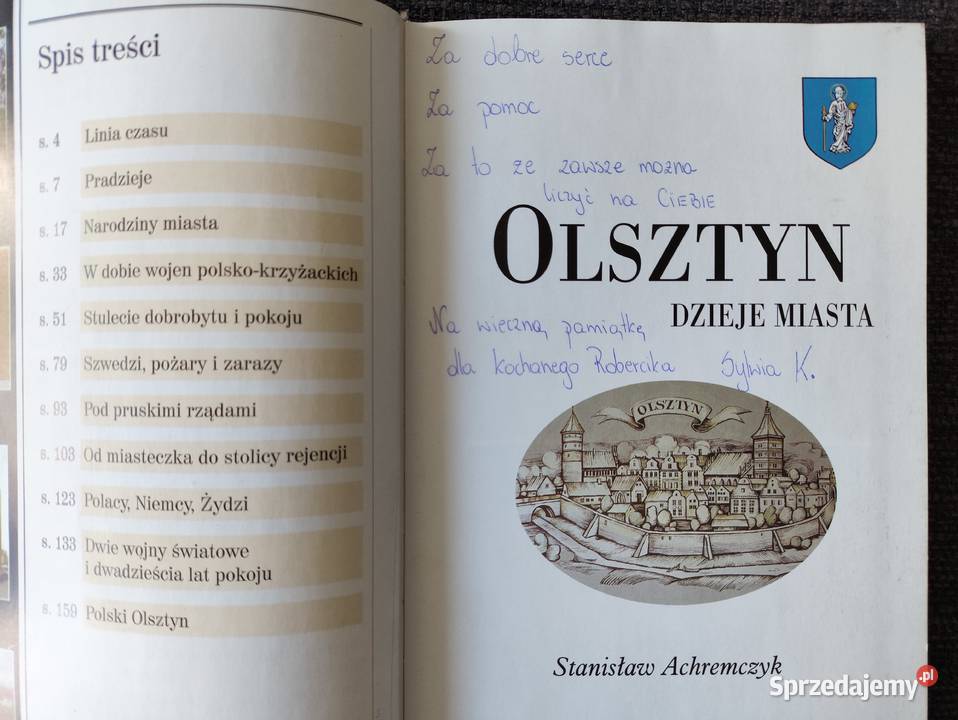 Spis treści
s. 4 Linia czasu
s. 7 Pradzieje
s. 17 Narodziny miasta
s. 33 W dobie wojen polsko-krzyżackich
s. 51 Stulecie dobrobytu i pokoju
s. 79 Szwedzi, pożary i zarazy
s. 93 Pod pruskimi rządami
s. 103 Od miasteczka do stolicy rejencji
s. 123 Polacy, Niemcy, Żydzi
s. 133 Dwie wojny światowe
i dwadzieścia lat pokoju
s. 159 Polski Olsztyn
Za dobre serce
Za pomoc
Za to że zawsze można
liczyć na CIEBIE
OLSZTYN
DZIEJE MIASTA
Na wieczną pamiątkę
dla kochanego Robercika Sylwia K.
OLSZTYN
Stanisław Achremczyk
Sprzedajemy.pl